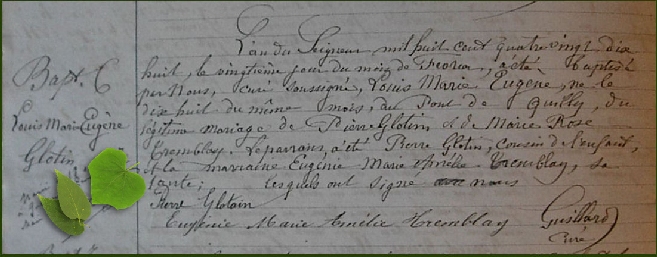 Bapt. C
Louis Marie Eugène
Glotin
L'an du Seigneur mil huit cent quatre vingt dix
huit, le vingtième jour du mois de Février, a été Baptisé
par Nous, curé soussigné, Louis Marie Eugène, né le
dix huit du même mois, du Pont de Quilly, du
légitime mariage de Pierre Glotin & de Marie Rose
Tremblay. Le parrain, a été Pierre Glotin, cousin de l'enfant,
et la marraine Eugénie Marie Amélie Tremblay, sa
tante; lesquels ont signé nous
Pierre Glotin
Eugénie Marie Amélie Tremblay Guillard
Curé